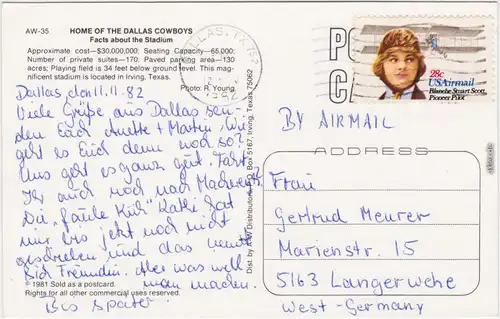 AW-35
HOME OF THE DALLAS COWBOYS
Facts about the Stadium
Approximate cost—$30,000,000; Seating Capacity—65,000;
Number of private suites—170. Paved parking area—130
acres; Playing field is 34 feet below ground level. This mag-
nificent stadium is located in Irving, Texas.
Photo: R. Young
Dallas den 11.11.82
Viele Grüße aus Dallas sen-
den Euch Anette + Martin. Wie
geht es Euch denn noch so?
Uns geht es ganz gut. Fahrt
Ihr auch noch nach
Die „faule Kuh“ Kathi hat
mir bis jetzt noch nicht
geschrieben und das nennt
sich Freundin. Aber was will
man machen.
Bis später
© 1981 Sold as a postcard.
Rights for all other commercial uses reserved.
Dist. by A-W Distributors, P.O. Box 5167, Irving, Texas 75062
DALLAS, TX 752
1982
28c
USAirmail
Blanche Stuart Scott
Pioneer Pilot
BY AIRMAIL
ADDRESS
Frau
Gertrud Meurer
Marienstr. 15
5163 Langerwehe
West-Germany